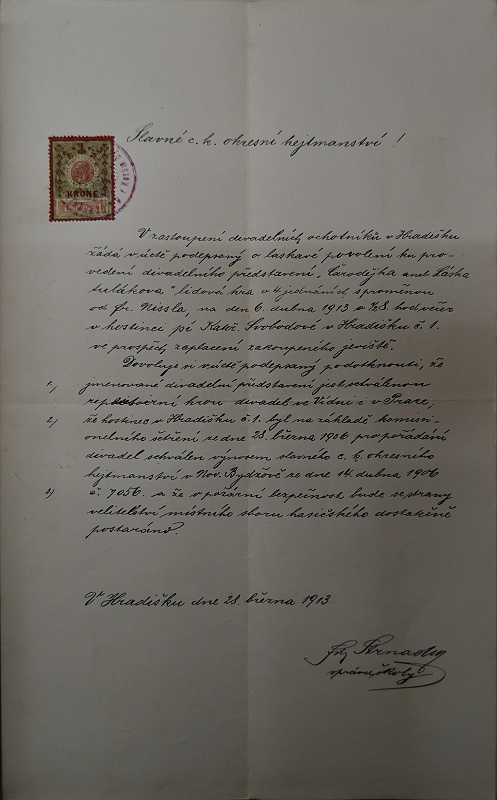 Slavné c. k. okresní hejtmanství!
1
KRONE
V zastoupení divadelních ochotníků v Hradišku
žádá v úctě podepsaný o laskavé povolení ku pro-
vedení divadelního představení „Čarodějka aneb Láska
tulákova" lidová hra o 4 jednáních s proměnou
od Fr. Nissla, na den 6. dubna 1913 o ½8. hod večer
v hostinci pí Kateř. Svobodové v Hradišku č. 1.
ve prospěch zaplacení zakoupeného jeviště.
Dovoluje si v úctě podepsaný podotknouti, že
1.) jmenované divadelní představení jest schválenou
repertoirní hrou divadel ve Vídni i v Praze;
2.) že hostinec v Hradišku č. 1. byl na základě komisi-
onelního šetření ze dne 28. března 1906 pro pořádání
divadel schválen výnosem slavného c. k. okresního
hejtmanství v Nov. Bydžově ze dne 14. dubna 1906
3) č. 7056. a že o požární bezpečnost bude se strany
velitelství místního sboru hasičského dostatečně
postaráno.
V Hradišku dne 28. března 1913.
Frt. Strnad
správce školy